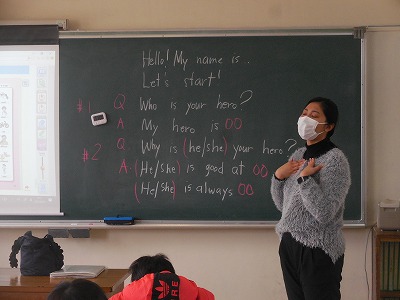 Hello! My name is .
Let's start!
#1 Q. Who is your hero?
A. My hero is OO
#2 Q. Why is (he/she) your hero?
A. (He/She) is good at OO
(He/She) is always OO